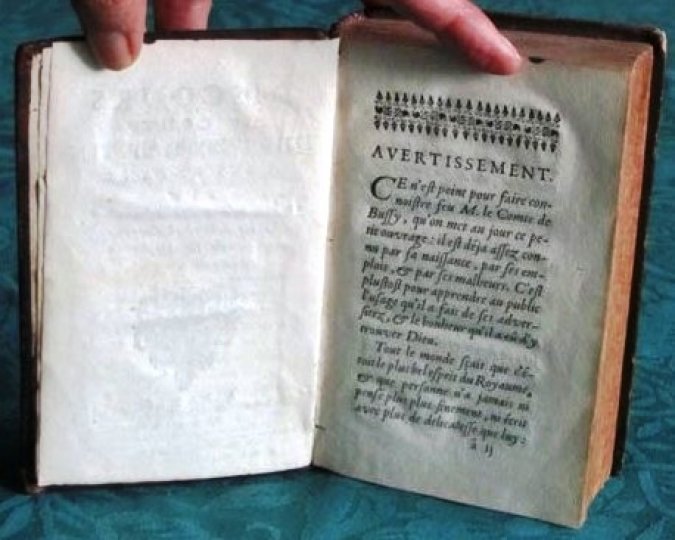 AVERTISSEMENT.
CE n'est point pour faire con-
noistre feu M. le Comte de
Bussy, qu'on met au jour ce pe-
tit ouvrage : il est déja assez con-
nu par sa naissance, par ses em-
plois, & par ses malheurs. C'est
plustost pour apprendre au public
l'usage qu'il a fait de ses adver-
sitez, & le bonheur qu'il a eû d'y
trouver Dieu.
Tout le monde sçait que c'é-
toit le plus bel esprit du Royaume,
& que personne n'a jamais ni
pensé plus finement, ni écrit
avec plus de délicatesse que luy :
à ij